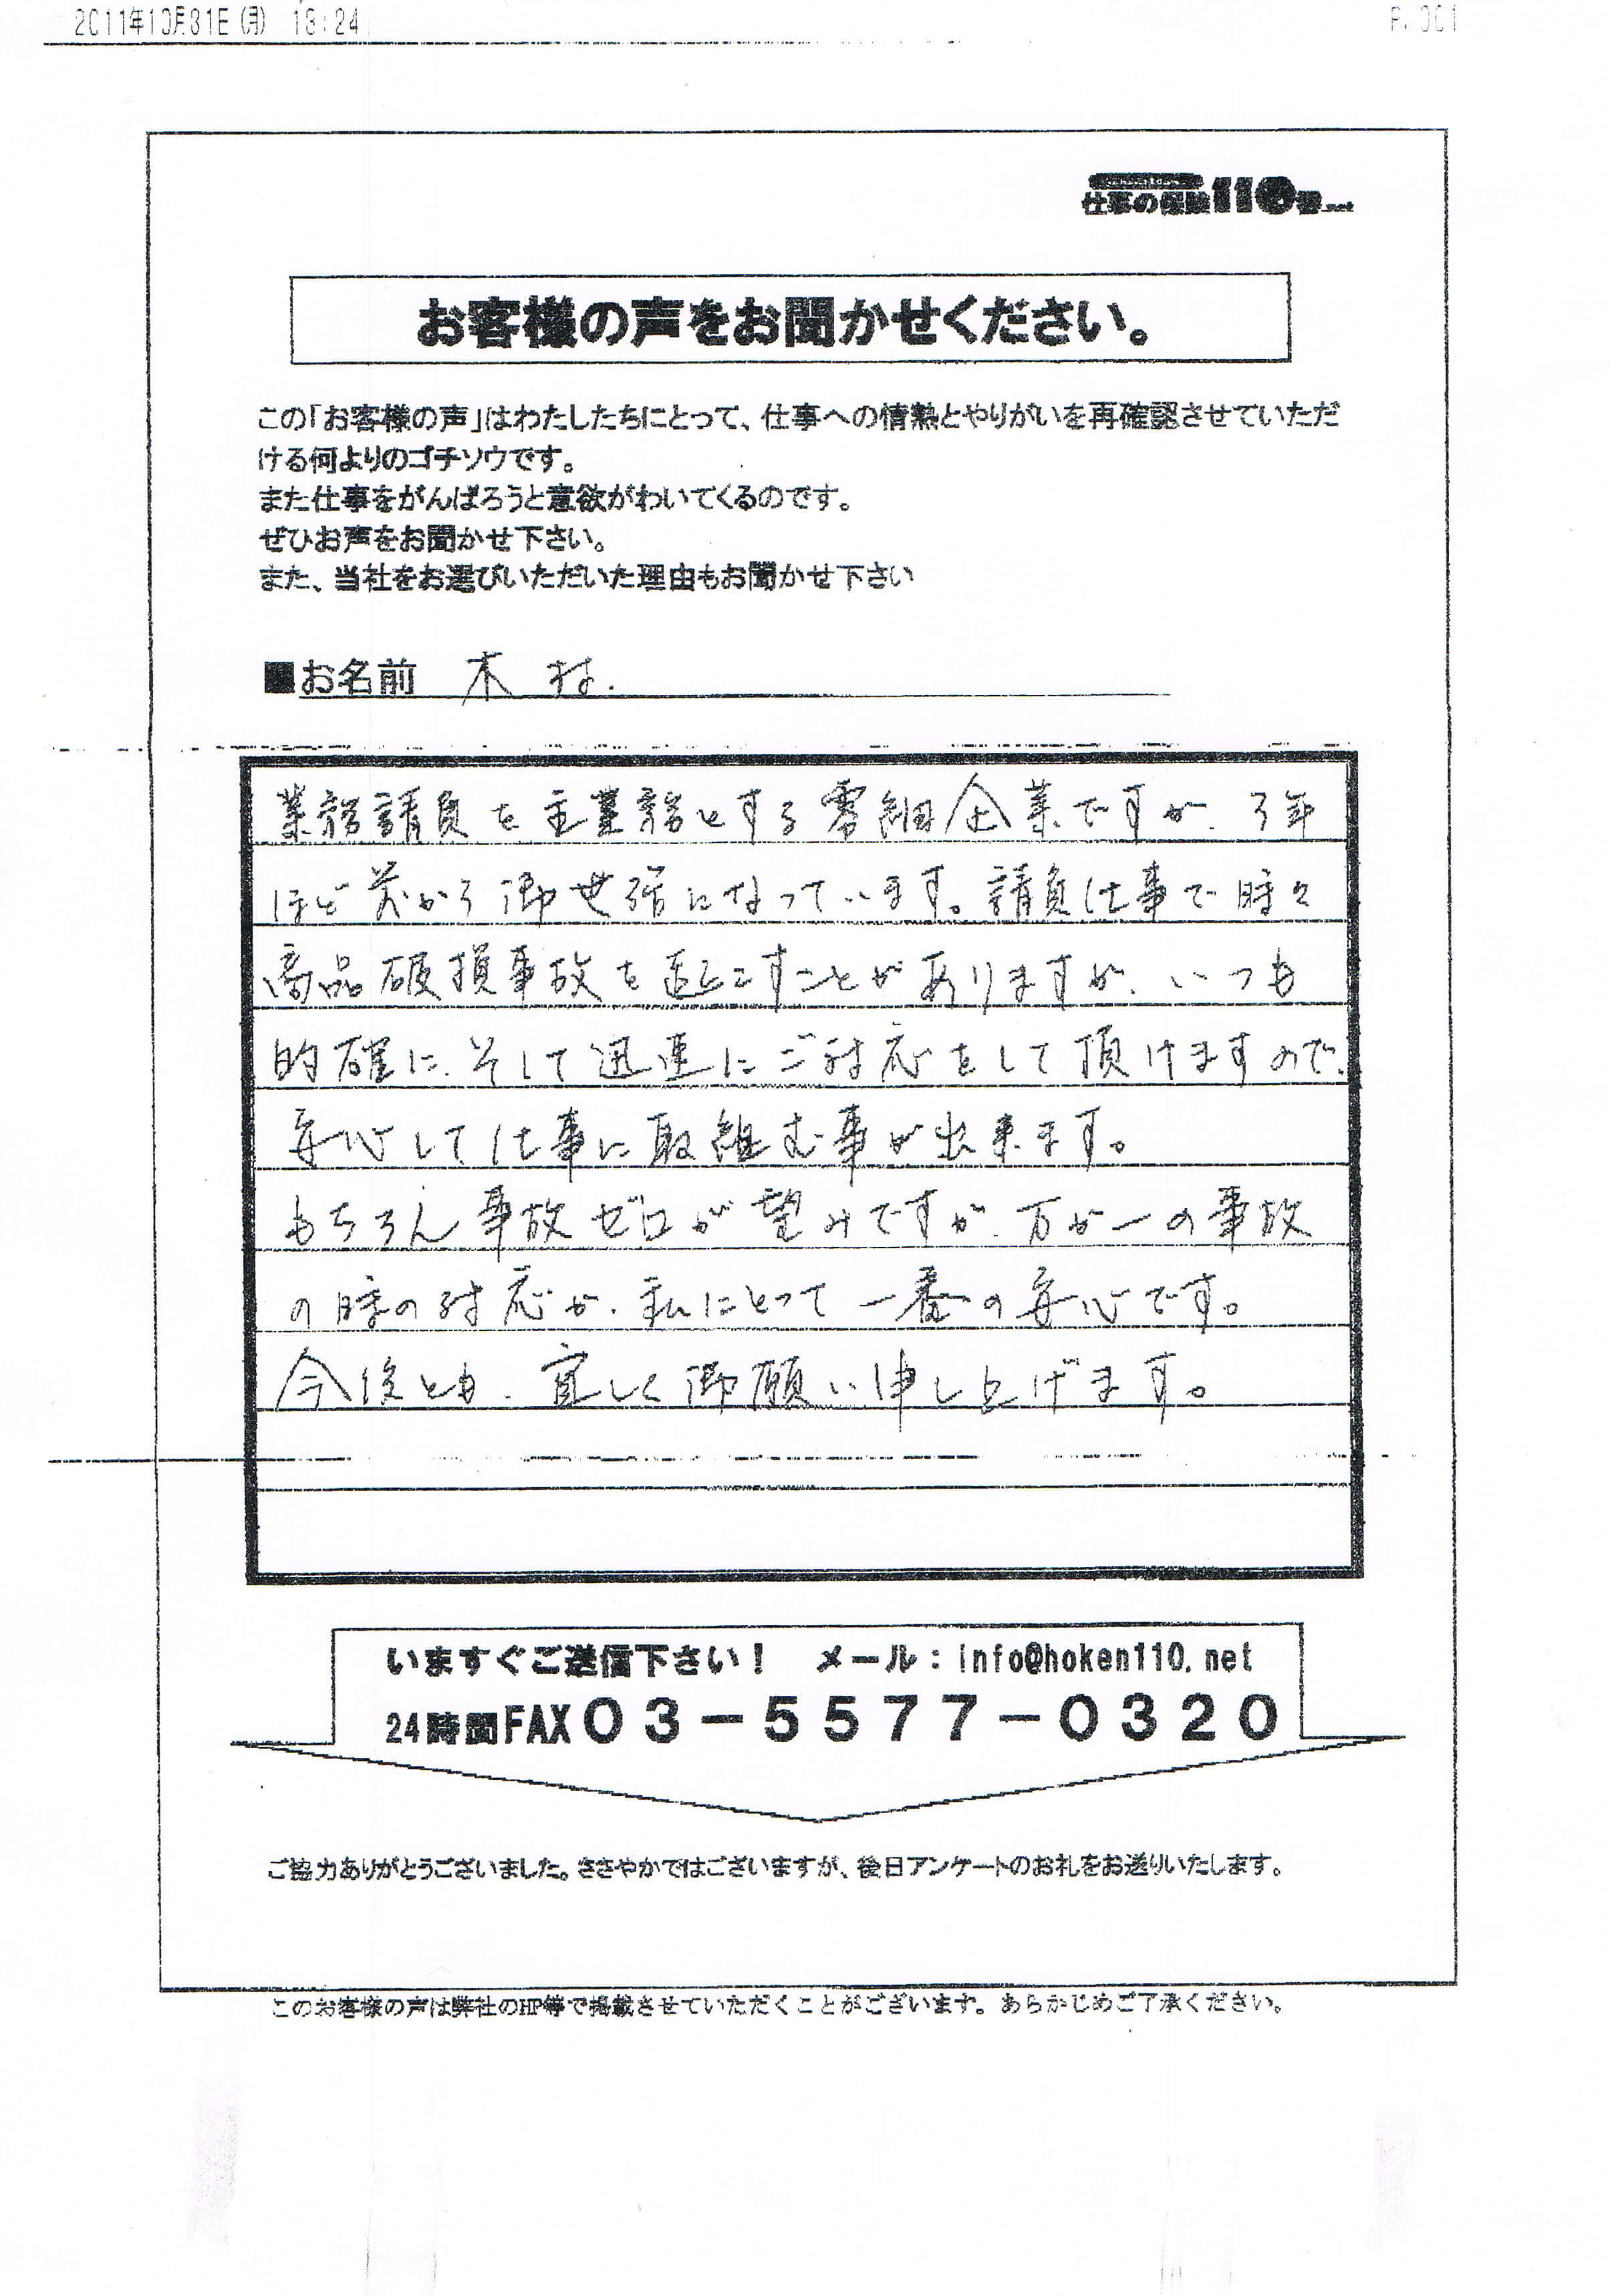 2011年10月31日(月) 18:24
P.001
仕事の保険110番.net
お客様の声をお聞かせください。
この「お客様の声」はわたしたちにとって、仕事への情熱とやりがいを再確認させていただ
ける何よりのゴチソウです。
また仕事をがんばろうと意欲がわいてくるのです。
ぜひお声をお聞かせ下さい。
また、当社をお選びいただいた理由もお聞かせ下さい
■お名前 木村.
業務請負を主業務とする零細企業ですが、3年
ほど前から御世話になっています。請負仕事で時々
商品破損事故を起こすことがありますが、いつも
的確に、そして迅速にご対応をして頂けますので、
安心して仕事に取組む事が出来ます。
もちろん事故ゼロが望みですが、万が一の事故
の時の対応が、私にとって一番の安心です。
今後とも、宜しく御願い申し上げます。
いますぐご送信下さい! メール:info@hoken110.net
24時間FAX03-5577-0320
ご協力ありがとうございました。ささやかではございますが、後日アンケートのお礼をお送りいたします。
このお客様の声は弊社のHP等で掲載させていただくことがございます。あらかじめご了承ください。